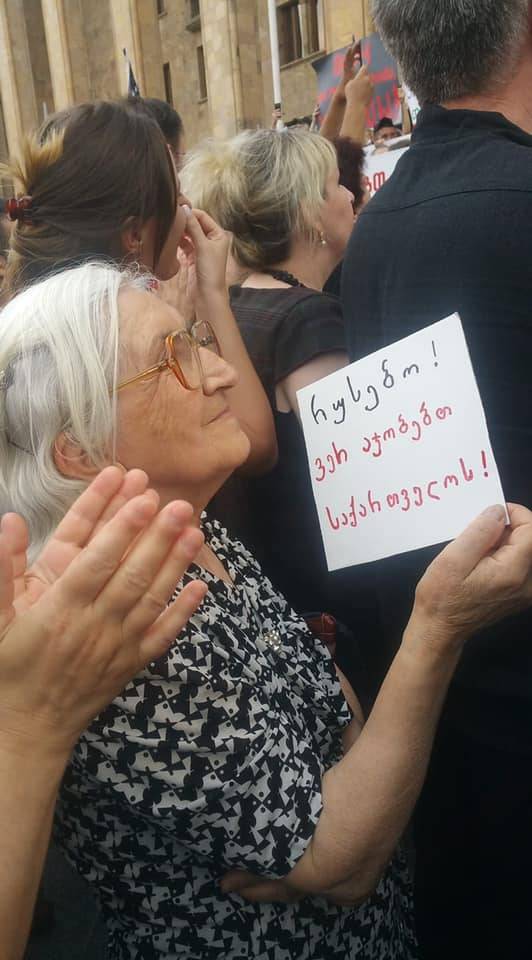 რუსებო!
ვერ აჯობებთ
საქართველოს!